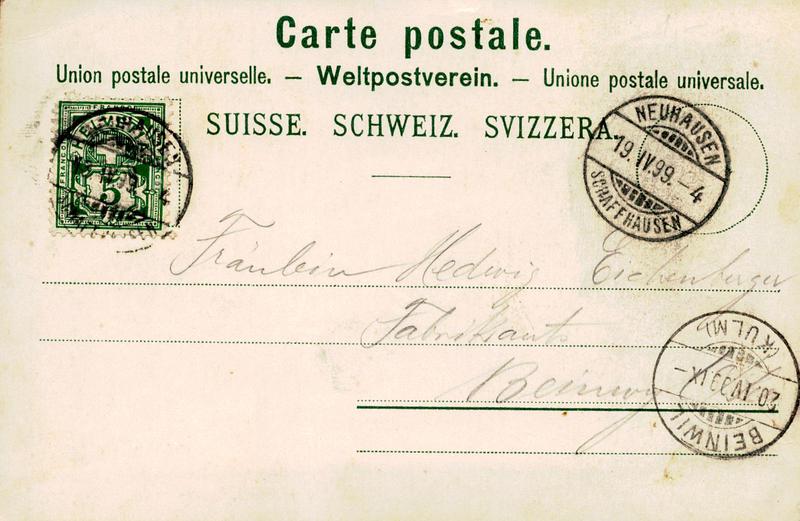 Carte postale.
Union postale universelle. — Weltpostverein. — Unione postale universale.
SUISSE. SCHWEIZ. SVIZZERA.
FRANCO
5
NEUHAUSEN
19. IV. 99. – 4
SCHAFFHAUSEN
Fräulein Hedwig Eichenberger
Fabrikants
Beinwyl
(KULM)
20. IV 99 IX –
BEINWIL